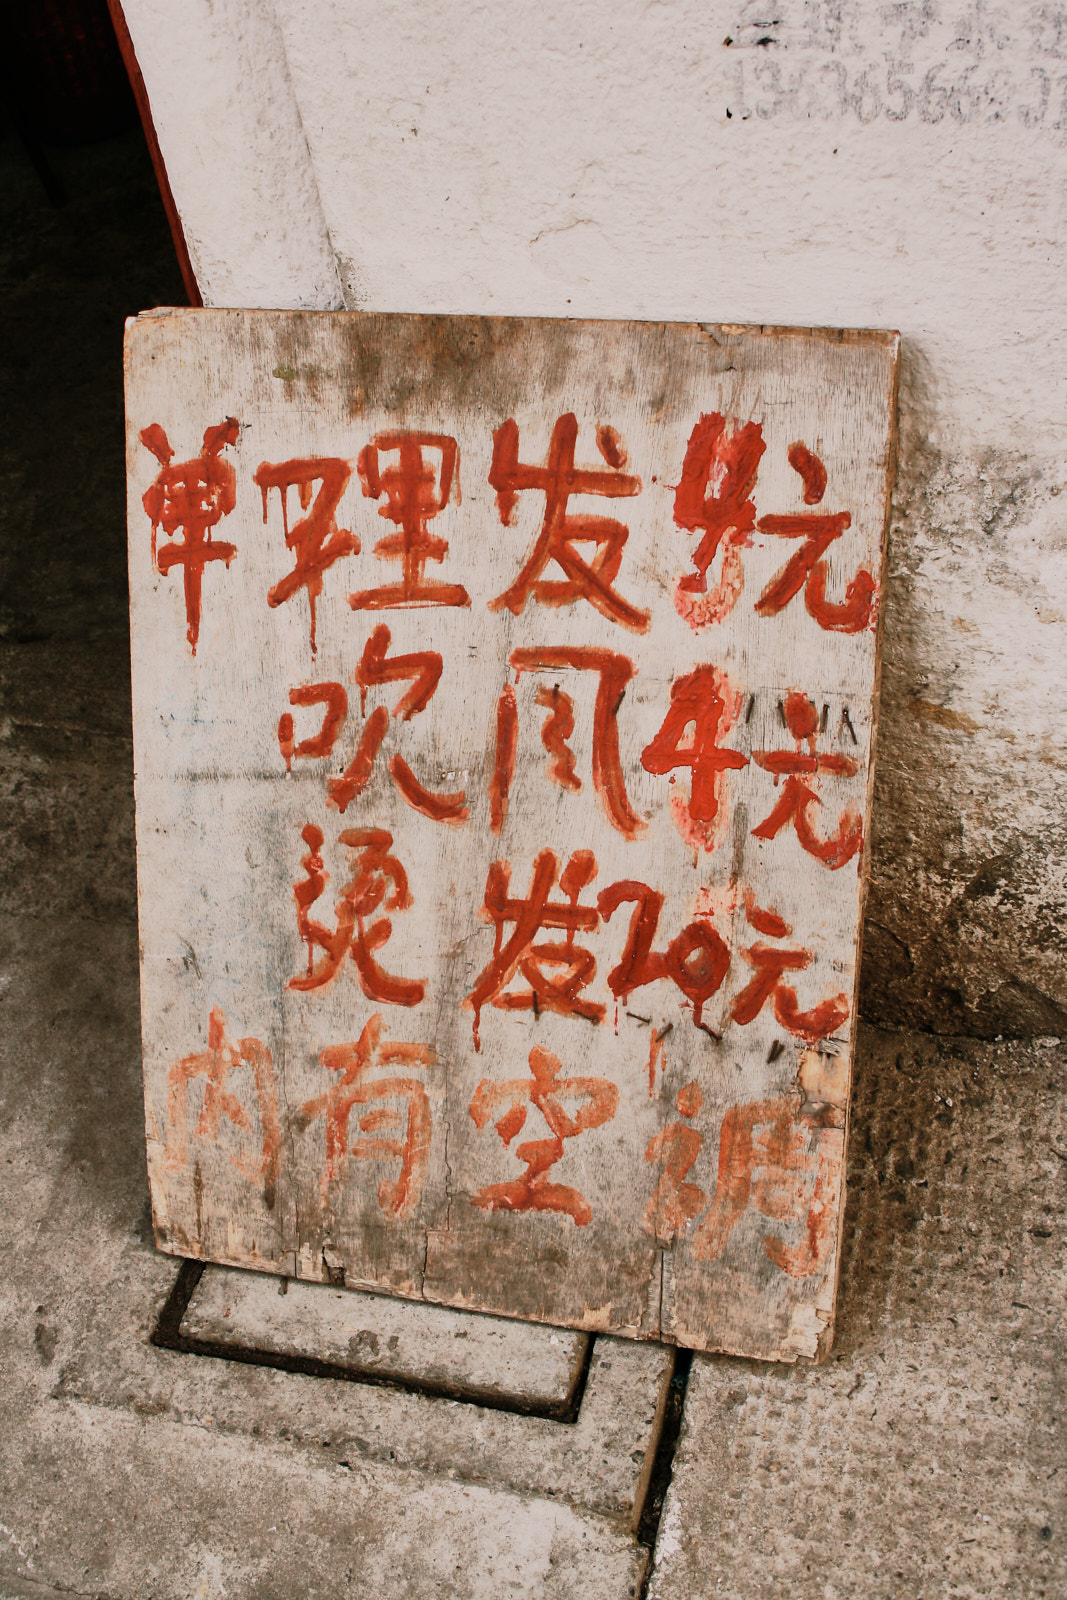 单理发4元
吹风4元
烫发20元
内有空调